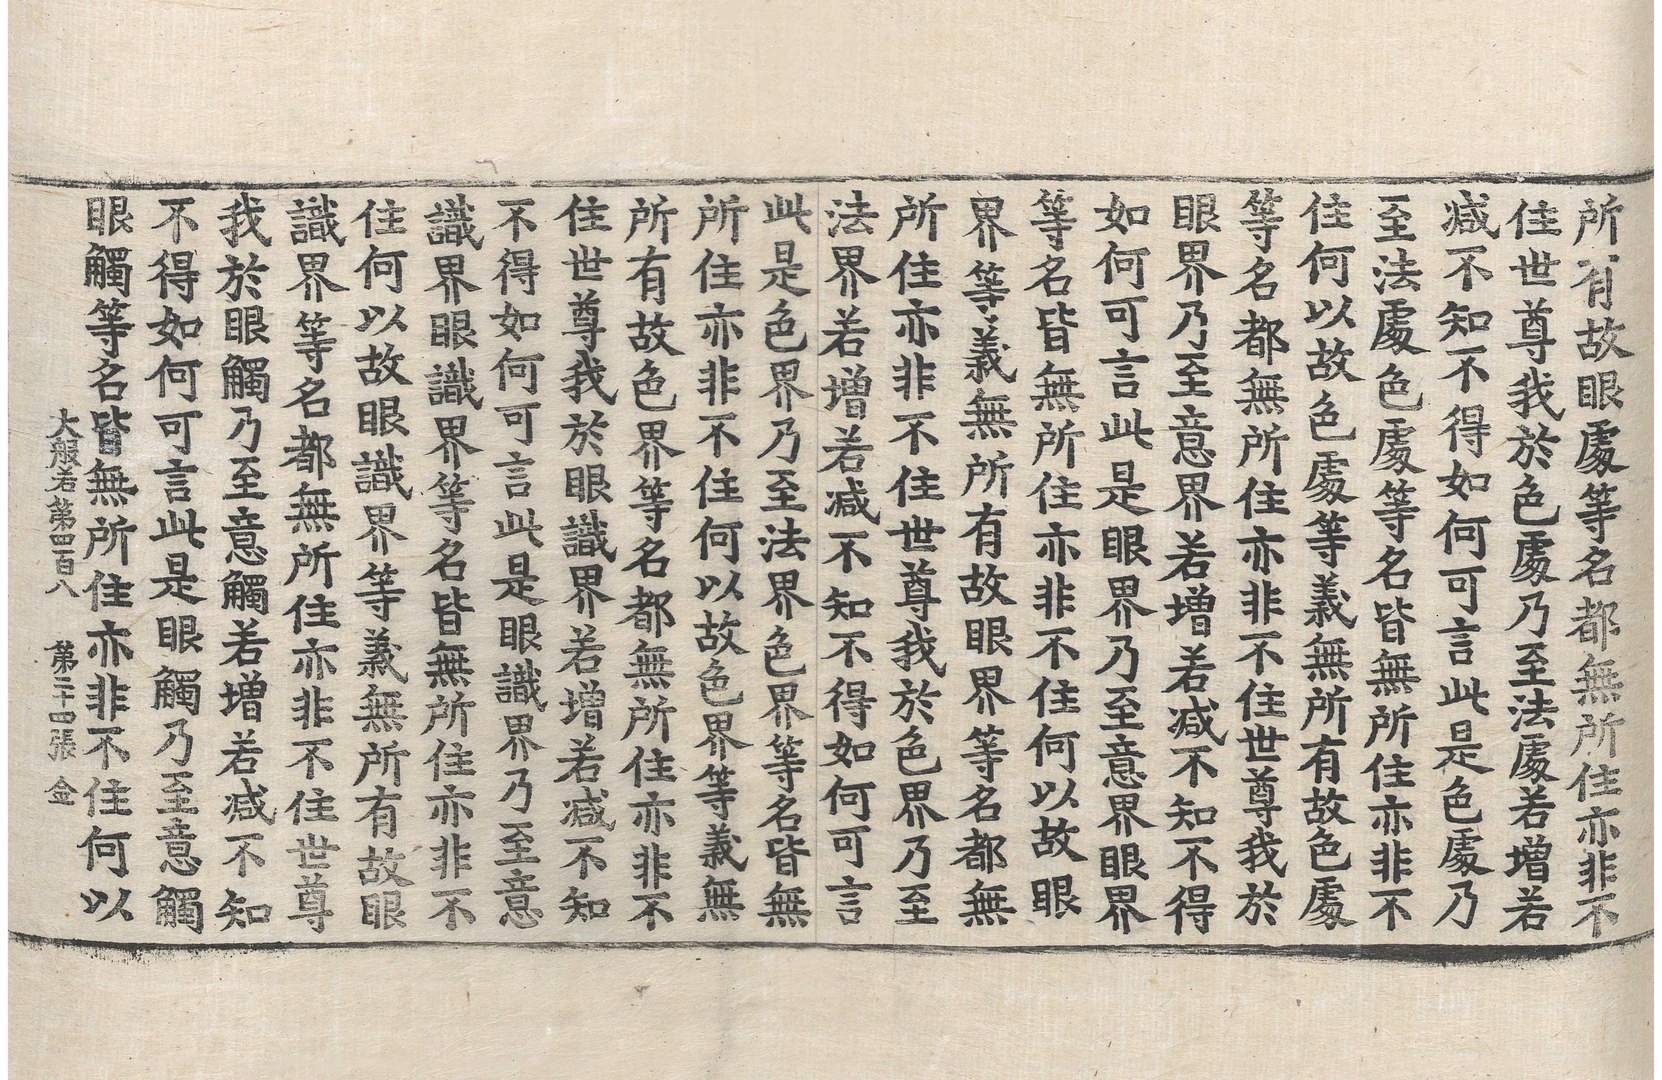 所有故眼處等名都無所住亦非不
住世尊我於色處乃至法處若增若
減不知不得如何可言此是色處乃
至法處色處等名皆無所住亦非不
住何以故色處等義無所有故色處
等名都無所住亦非不住世尊我於
眼界乃至意界若增若減不知不得
如何可言此是眼界乃至意界眼界
等名皆無所住亦非不住何以故眼
界等義無所有故眼界等名都無
所住亦非不住世尊我於色界乃至
法界若增若減不知不得如何可言
此是色界乃至法界色界等名皆無
所住亦非不住何以故色界等義無
所有故色界等名都無所住亦非不
住世尊我於眼識界若增若減不知
不得如何可言此是眼識界乃至意
識界眼識界等名皆無所住亦非不
住何以故眼識界等義無所有故眼
識界等名都無所住亦非不住世尊
我於眼觸乃至意觸若增若減不知
不得如何可言此是眼觸乃至意觸
眼觸等名皆無所住亦非不住何以
大般若第四百八 第二十四張 金